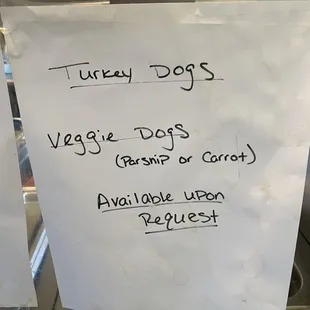 Turkey Dogs
Veggie Dogs
(Parsnip or Carrot)
Available upon
Request